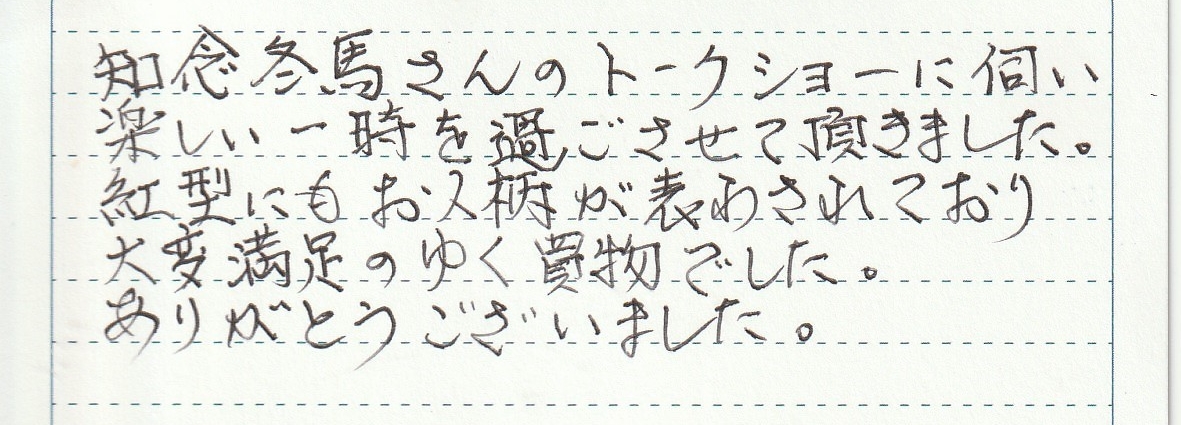 知念冬馬さんのトークショーに伺い
楽しい一時を過ごさせて頂きました。
紅型にもお人柄が表わされており
大変満足のゆく買物でした。
ありがとうございました。